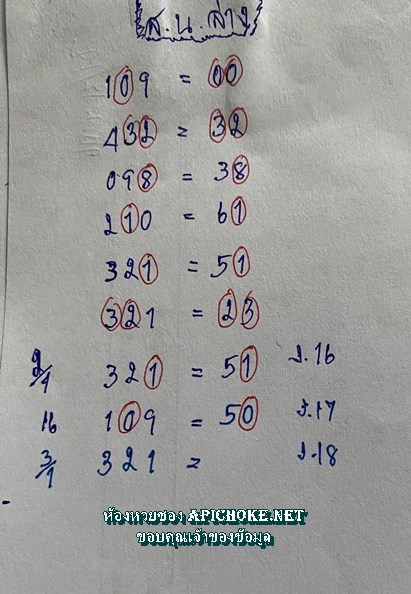 ส.น.ล่าง
109 = 00
432 = 32
098 = 38
210 = 61
321 = 51
321 = 23
2/1 321 = 51 ว.16
16 109 = 50 ว.17
3/1 321 = ว.18
ห้องหวยซอง APICHOKE.NET
ขอบคุณเจ้าของข้อมูล